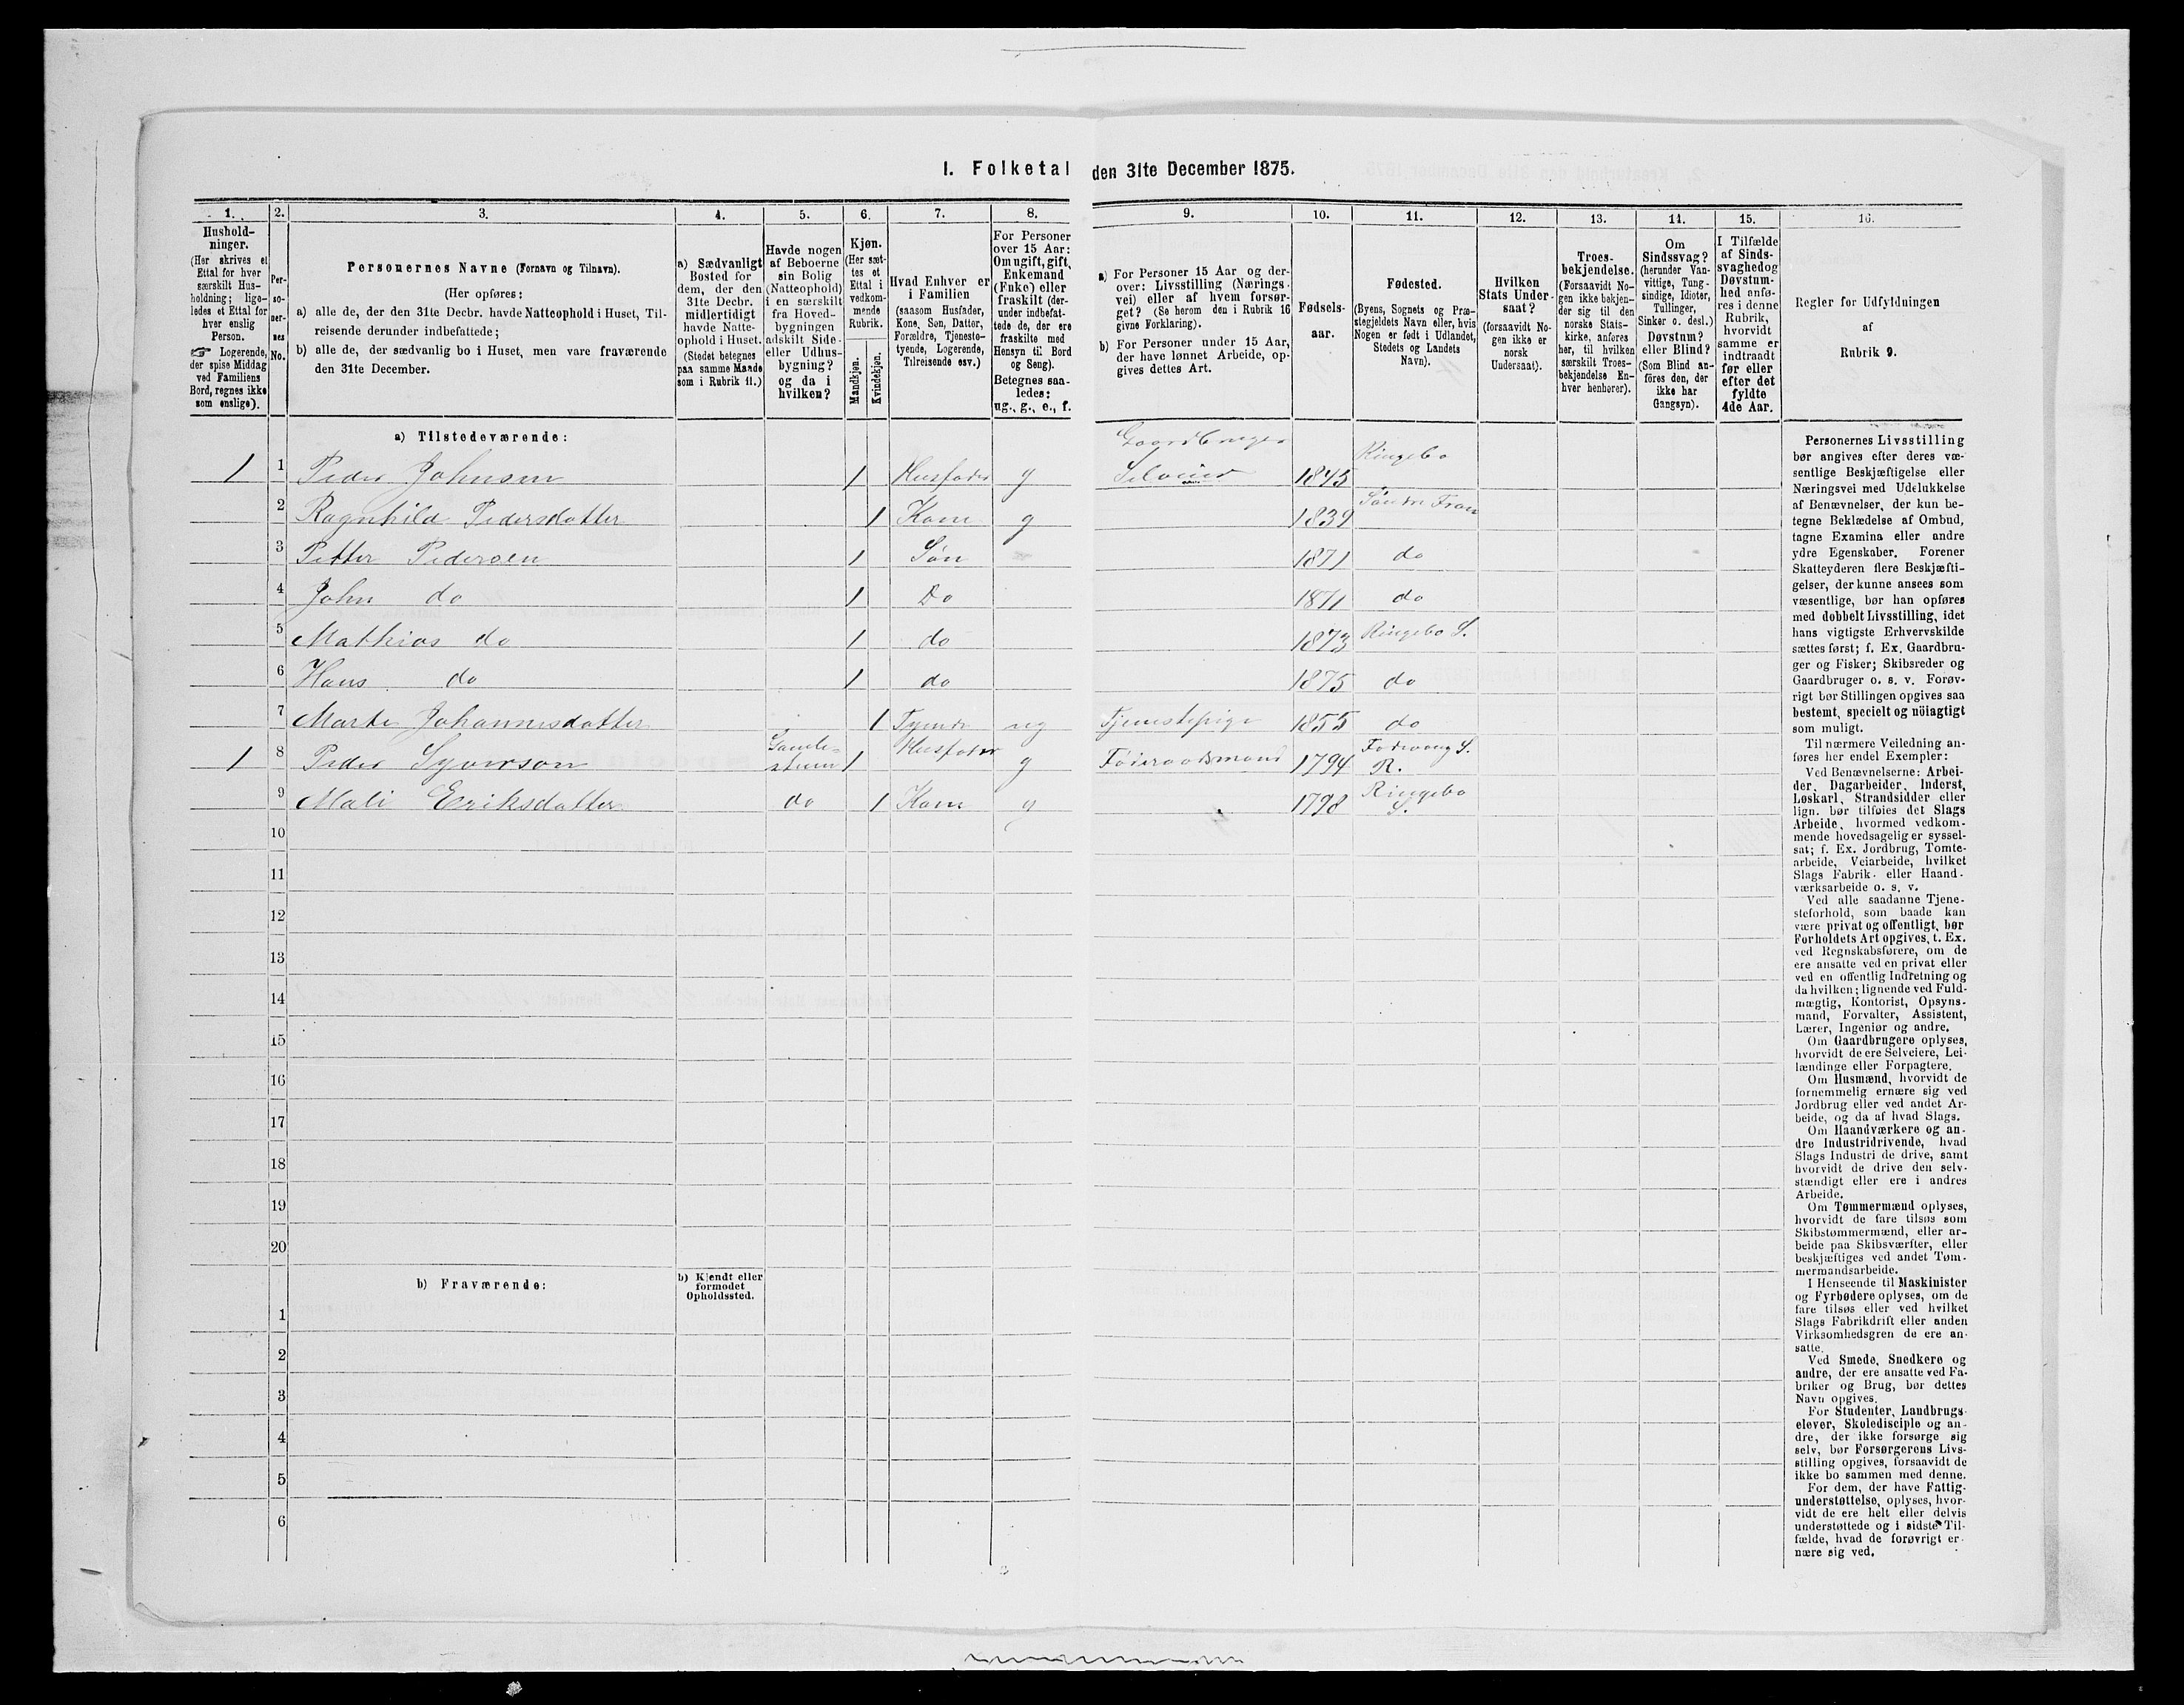 I. Folketal den 31te December 1875.
1. 2. 3. 4. 5. 6. 7. 8. 9. 10. 11. 12. 13. 14. 15. 16.
Hushold-
ninger.
(Her skrives et
Ettal for hver
særskilt Hus-
holdning; lige-
ledes et Ettal for
hver enslig
Person.
☞ Logerende,
der spise Middag
ved Familiens
Bord, regnes ikke
som enslige).
Per-
so-
ner-
nes
No.
Personernes Navne (Fornavn og Tilnavn).
(Her opføres:
a) alle de, der den 31te Decbr. havde Natteophold i Huset, Til-
reisende derunder indbefattede;
b) alle de, der sædvanlig bo i Huset, men vare fraværende
den 31te December.
a) Sædvanligt
Bosted for
dem, der den
31te Decbr.
midlertidigt
havde Natte-
ophold i Huset.
(Stedet betegnes
paa samme Maade
som i Rubrik 11.)
Havde nogen
af Beboerne
sin Bolig
(Natteophold)
i en særskilt
fra Hoved-
bygningen
adskilt Side-
eller Udhus-
bygning?
og da i
hvilken?
Kjøn.
(Her sæt-
tes et
Ettal i
vedkom-
mende
Rubrik.
Mandkjøn.
Kvindekjøn.
Hvad Enhver er
i Familien
(saasom Husfader,
Kone, Søn, Datter,
Forældre, Tjenesto-
tyende, Logerende,
Tilreisende osv.)
For Personer
over 15 Aar:
Om ugift, gift,
Enkemand
(Enke) eller
fraskilt (der-
under indbefat-
tede de, der ere
fraskilte med
Hensyn til Bord
og Seng).
Betegnes saa-
ledes:
ug., g., e., f.
a) For Personer 15 Aar og der-
over: Livsstilling (Nærings-
vei) eller af hvem forsør-
get? (Se herom den i Rubrik 16
givne Forklaring).
b) For Personer under 15 Aar,
der have lønnet Arbeide, op-
gives dettes Art.
Fødsels-
aar.
Fødested.
(Byens, Sognets og Præ-
stegjeldets Navn eller, hvis
Nogen er født i Udlandet,
Stedets og Landets
Navn).
Hvilken
Stats Under-
saat?
(forsaavidt No-
gen ikke er
norsk
Undersaat).
Troes-
bekjendelse.
(Forsaavidt No-
gen ikke bekjen-
der sig til den
norske Stats-
kirke, anføres
her, til hvilken
særskilt Troes-
bekjendelse En-
hver henhører).
Om
Sindssvag?
(herunder Van-
vittige, Tung-
sindige, Idioter,
Tullinger,
Sinker o. desl.)
Døvstum?
eller Blind?
(Som Blind an-
føres den, der
ikke har
Gangsyn).
I Tilfælde
af Sinds-
svaghed og
Døvstum-
hed anfø-
res i denne
Rubrik,
hvorvidt
samme er
indtraadt
før eller
efter det
fyldte
4de Aar.
Regler for Udfyldningen
af
Rubrik 9.
a) Tilstedeværende:
Gaardbruger
1 1 Peder Johnsen 1 Husfader g Selveier 1845 Ringebo
2 Ragnhild Pedersdatter 1 Kone g 1839 Søndre Fron
3 Petter Pedersen 1 Søn 1871 do
4 John do 1 Do 1871 do
5 Mathias do 1 do 1873 Ringebo S.
6 Hans do 1 do 1875 do
7 Marte Johannesdatter 1 ug Tjenestepige 1855 do
1 8 Peder Syverson 1 Husfader g Føderaadsmand 1794 R.
9 Mali Eriksdatter do 1 Kone g 1798 Ringebo S.
10
11
12
13
14
15
16
17
18
19
20
b) Fraværende:
b) Kjendt eller
formodet
Opholdssted.
1
2
3
4
5
6
Personernes Livsstilling
bør angives efter deres væ-
sentlige Beskjæftigelse eller
Næringsvei med Udelukkelse
af Benævnelser, der kun be-
tegne Beklædelse af Ombud,
tagne Examina eller andre
ydre Egenskaber. Forener
Skatteyderen flere Beskjæfti-
gelser, der kunne ansees som
væsentlige, bør han opføres
med dobbelt Livsstilling, idet
hans vigtigste Erhvervskilde
sættes først; f. Ex. Gaardbru-
ger og Fisker; Skibsreder og
Gaardbruger o. s. v. Forøv-
rigt bør Stillingen opgives saa
bestemt, specielt og nöiagtigt
som muligt.
Til nærmere Veiledning an-
føres her endel Exempler:
Ved Benævnelserne: Arbei-
der, Dagarbeider, Inderst,
Løskarl, Strandsidder eller
lign. bør tilføies det Slags
Arbeide, hvormed vedkom-
mende hovedsagelig er syssel-
sat; f. Ex. Jordbrug, Tomte-
arbeide, Veiarbeide, hvilket
Slags Fabrik- eller Haand-
værksarbeide o. s. v.
Ved alle saadanne Tjene-
steforhold, som baade kan
være privat og offentligt, bør
Forholdets Art opgives, t. Ex.
ved Regnskabsførere, om de
ere ansatte ved en privat eller
ved en offentlig Indretning og
da hvilken; lignende ved Fuld-
mægtig, Kontorist, Opsyns-
mand, Forvalter, Assistent,
Lærer, Ingeniør og andre.
Om Gaardbrugere oplyses,
hvorvidt de ere Selveiere, Lei-
lændinge eller Forpagtere.
Om Husmænd, hvorvidt de
fornemmelig ernære sig ved
Jordbrug eller ved andet Ar-
beide, og da af hvad Slags.
Om Haandværkere og an-
dre Industridrivende, hvad
Slags Industri de drive, samt
hvorvidt de drive den selv-
stændigt eller ere i andres
Arbeide.
Om Tømmermænd oplyses,
hvorvidt de fare tilsøs som
Skibstømmermænd, eller ar-
beide paa Skibsværfter, eller
beskjæftiges ved andet Tøm-
mermandsarbeide.
I Henseende til Maskinister
og Fyrbødere oplyses, om de
fare tilsøs eller ved hvilket
Slags Fabrikdrift eller anden
Virksomhedsgren de ere an-
satte.
Ved Smede, Snedkere og
andre, der ere ansatte ved Fa-
briker og Brug, bør dettes
Navn opgives.
For Studenter, Landbrugs-
elever, Skoledisciple og an-
dre, der ikke forsørge sig
selv, bør Forsørgerens Livs-
stilling opgives, forsaavidt de
ikke bo sammen med denne.
For dem, der have Fattig-
understøttelse, oplyses, hvor-
vidt de ere helt eller delvis
understøttede og i sidste Til-
fælde, hvad de forøvrigt er-
nære sig ved.